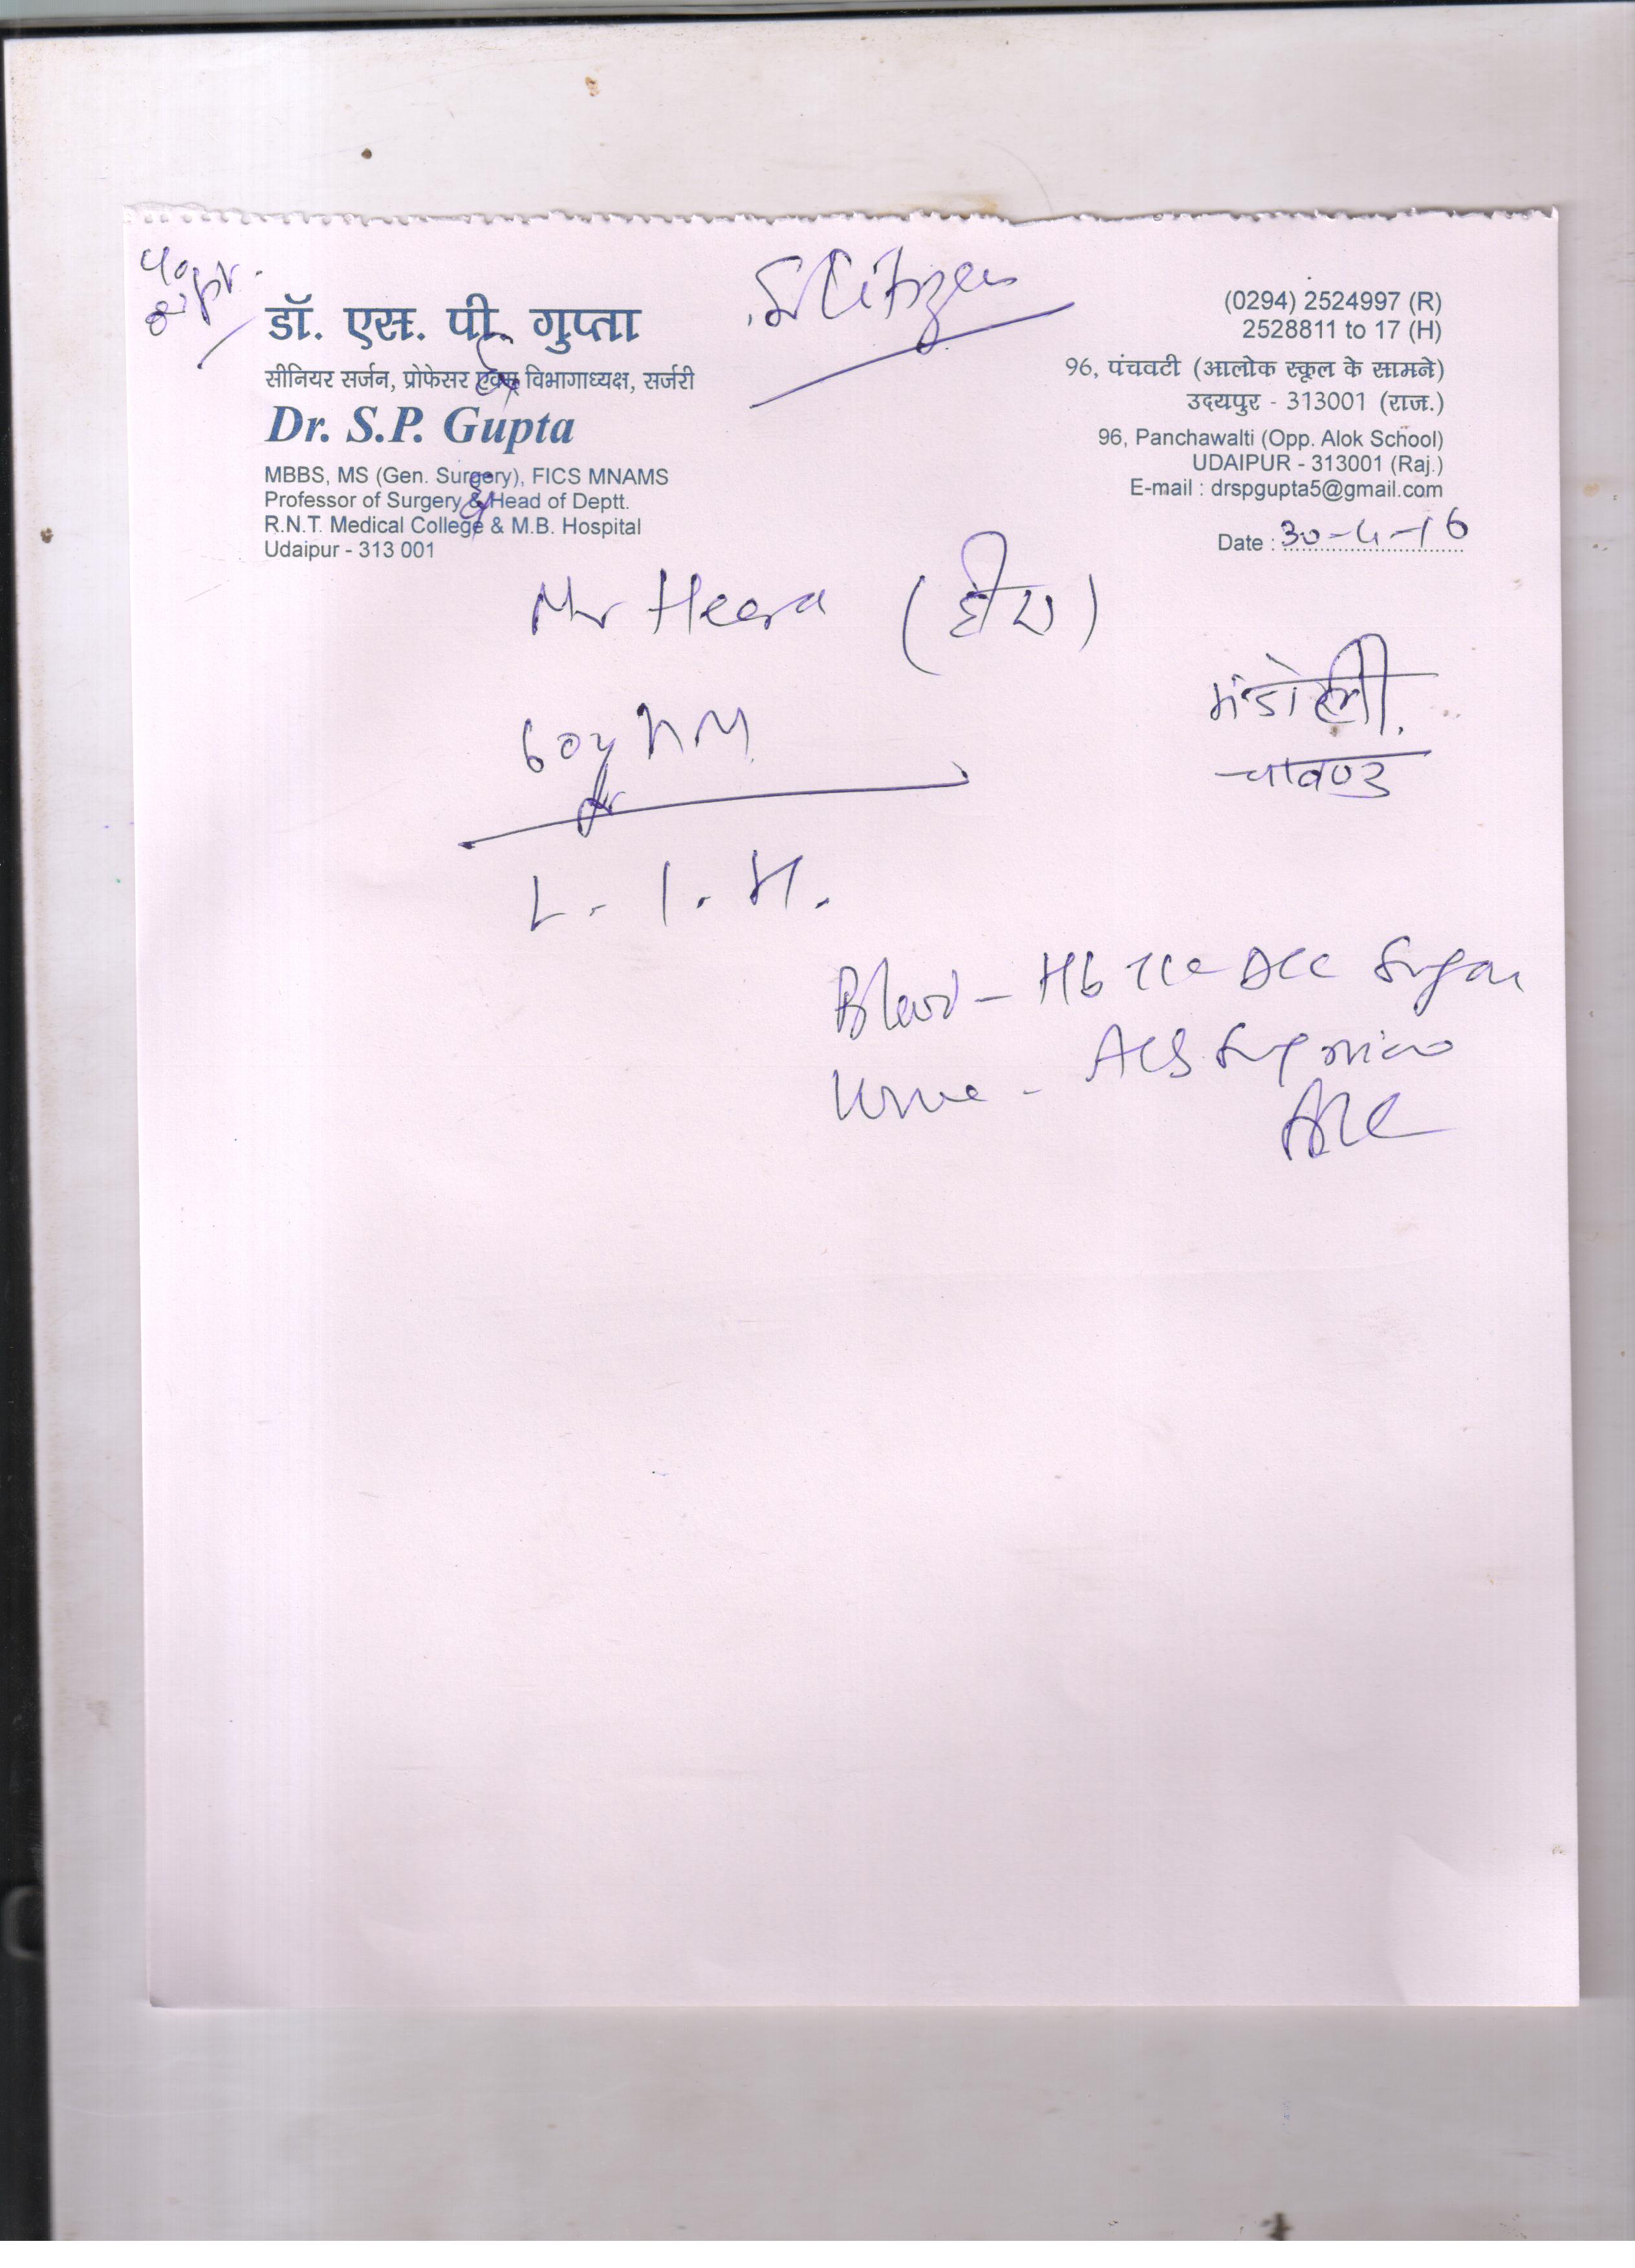 S Citizen
डॉ. एस. पी. गुप्ता
सीनियर सर्जन, प्रोफेसर एवम् विभागाध्यक्ष, सर्जरी
Dr. S.P. Gupta
MBBS, MS (Gen. Surgery), FICS MNAMS
Professor of Surgery & Head of Deptt.
R.N.T. Medical College & M.B. Hospital
Udaipur - 313 001
(0294) 2524997 (R)
2528811 to 17 (H)
96, पंचवटी (आलोक स्कूल के सामने)
उदयपुर - 313001 (राज.)
96, Panchawalti (Opp. Alok School)
UDAIPUR - 313001 (Raj.)
E-mail : drspgupta5@gmail.com
Date : 30-4-16
Mr Heera (हीरा)
60y M
चावण्ड
L. I. H.
Blood - Hb TLC DLC Sugar
Urine - Sug micro